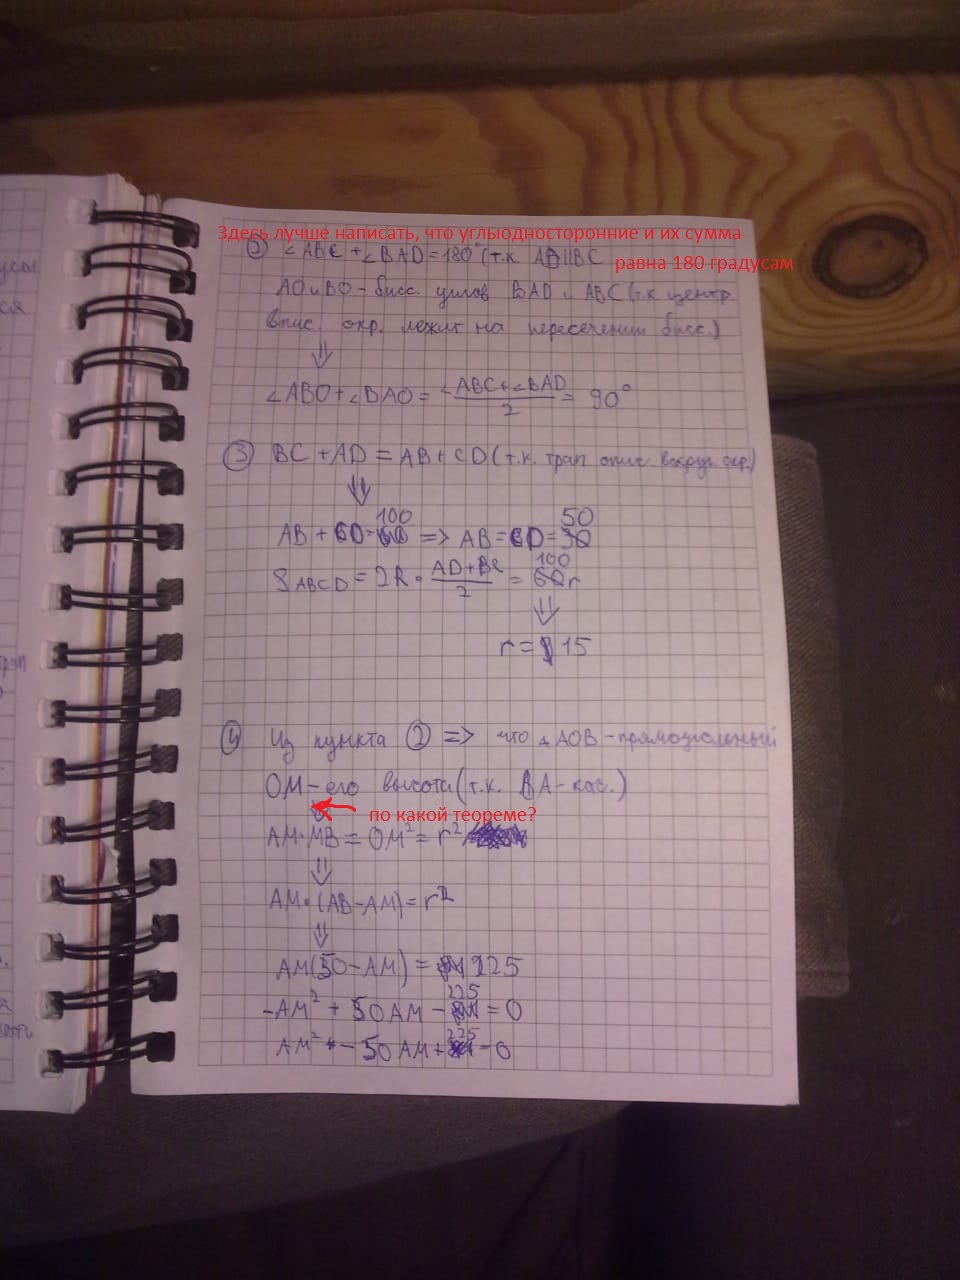 Здесь лучше написать, что углыодносторонние и их сумма
равна 180 градусам
② ∠ABC + ∠BAD = 180° (т.к. AD||BC
AO и BO - бисс. углов BAD и ABC (т.к центр
впис. окр. лежит на пересечении бисс.)
⇓
∠ABO + ∠BAO = ∠ABC + ∠BAD / 2 = 90°
③ BC + AD = AB + CD (т.к. трап опис. вокруг окр.)
⇓
AB + CD = 100 => AB = CD = 50
S ABCD = 2R · AD + BC / 2 = 100 r
⇓
r = 15
④ Из пункта ② => что △ AOB - прямоугольный
OM - его высота (т.к. BA - кас.)
⇓ по какой теореме?
AM · MB = OM² = r²
⇓
AM · (AB - AM) = r²
⇓
AM (50 - AM) = 225
-AM² + 50AM - 225 = 0
AM² - 50AM + 225 = 0